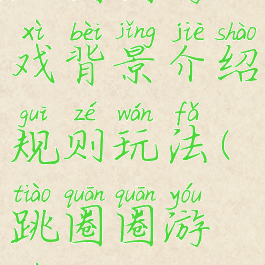 xì bèi jǐng jiè shào
戏背景介绍
guī zé wán fǎ
规则玩法(
tiào quān quān yóu
跳圈圈游